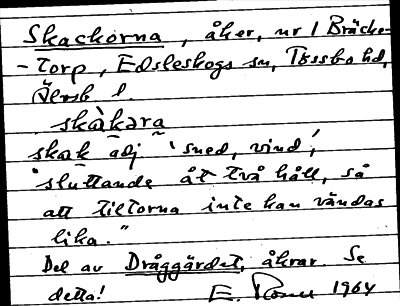 Skackorna, åker, nr 1 Bräcke-
-torp, Edsleskogs sn, Tössbo hd,
Älvsb l.
skàkara
skak adj 'sned, vind',
"sluttande åt två håll, så
att tiltorna inte kan vändas
lika."
Del av Dråggärdet, åkrar. Se
detta! E. 1964